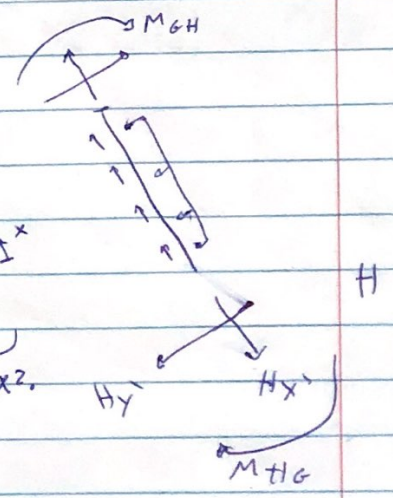 M_GH
I^x
H
x².
Hy`
Hx`
M_HG